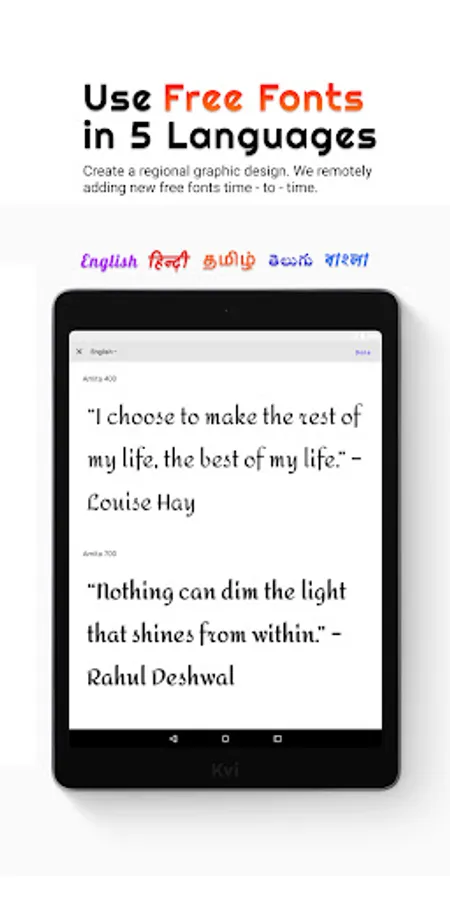 Use Free Fonts
in 5 Languages
Create a regional graphic design. We remotely
adding new free fonts time - to - time.
English हिन्दी தமிழ் తెలుగు বাংলা
English
Done
Amita 400
“I choose to make the rest of
my life, the best of my life.” –
Louise Hay
Amita 700
“Nothing can dim the light
that shines from within.” –
Rahul Deshwal
Kvi